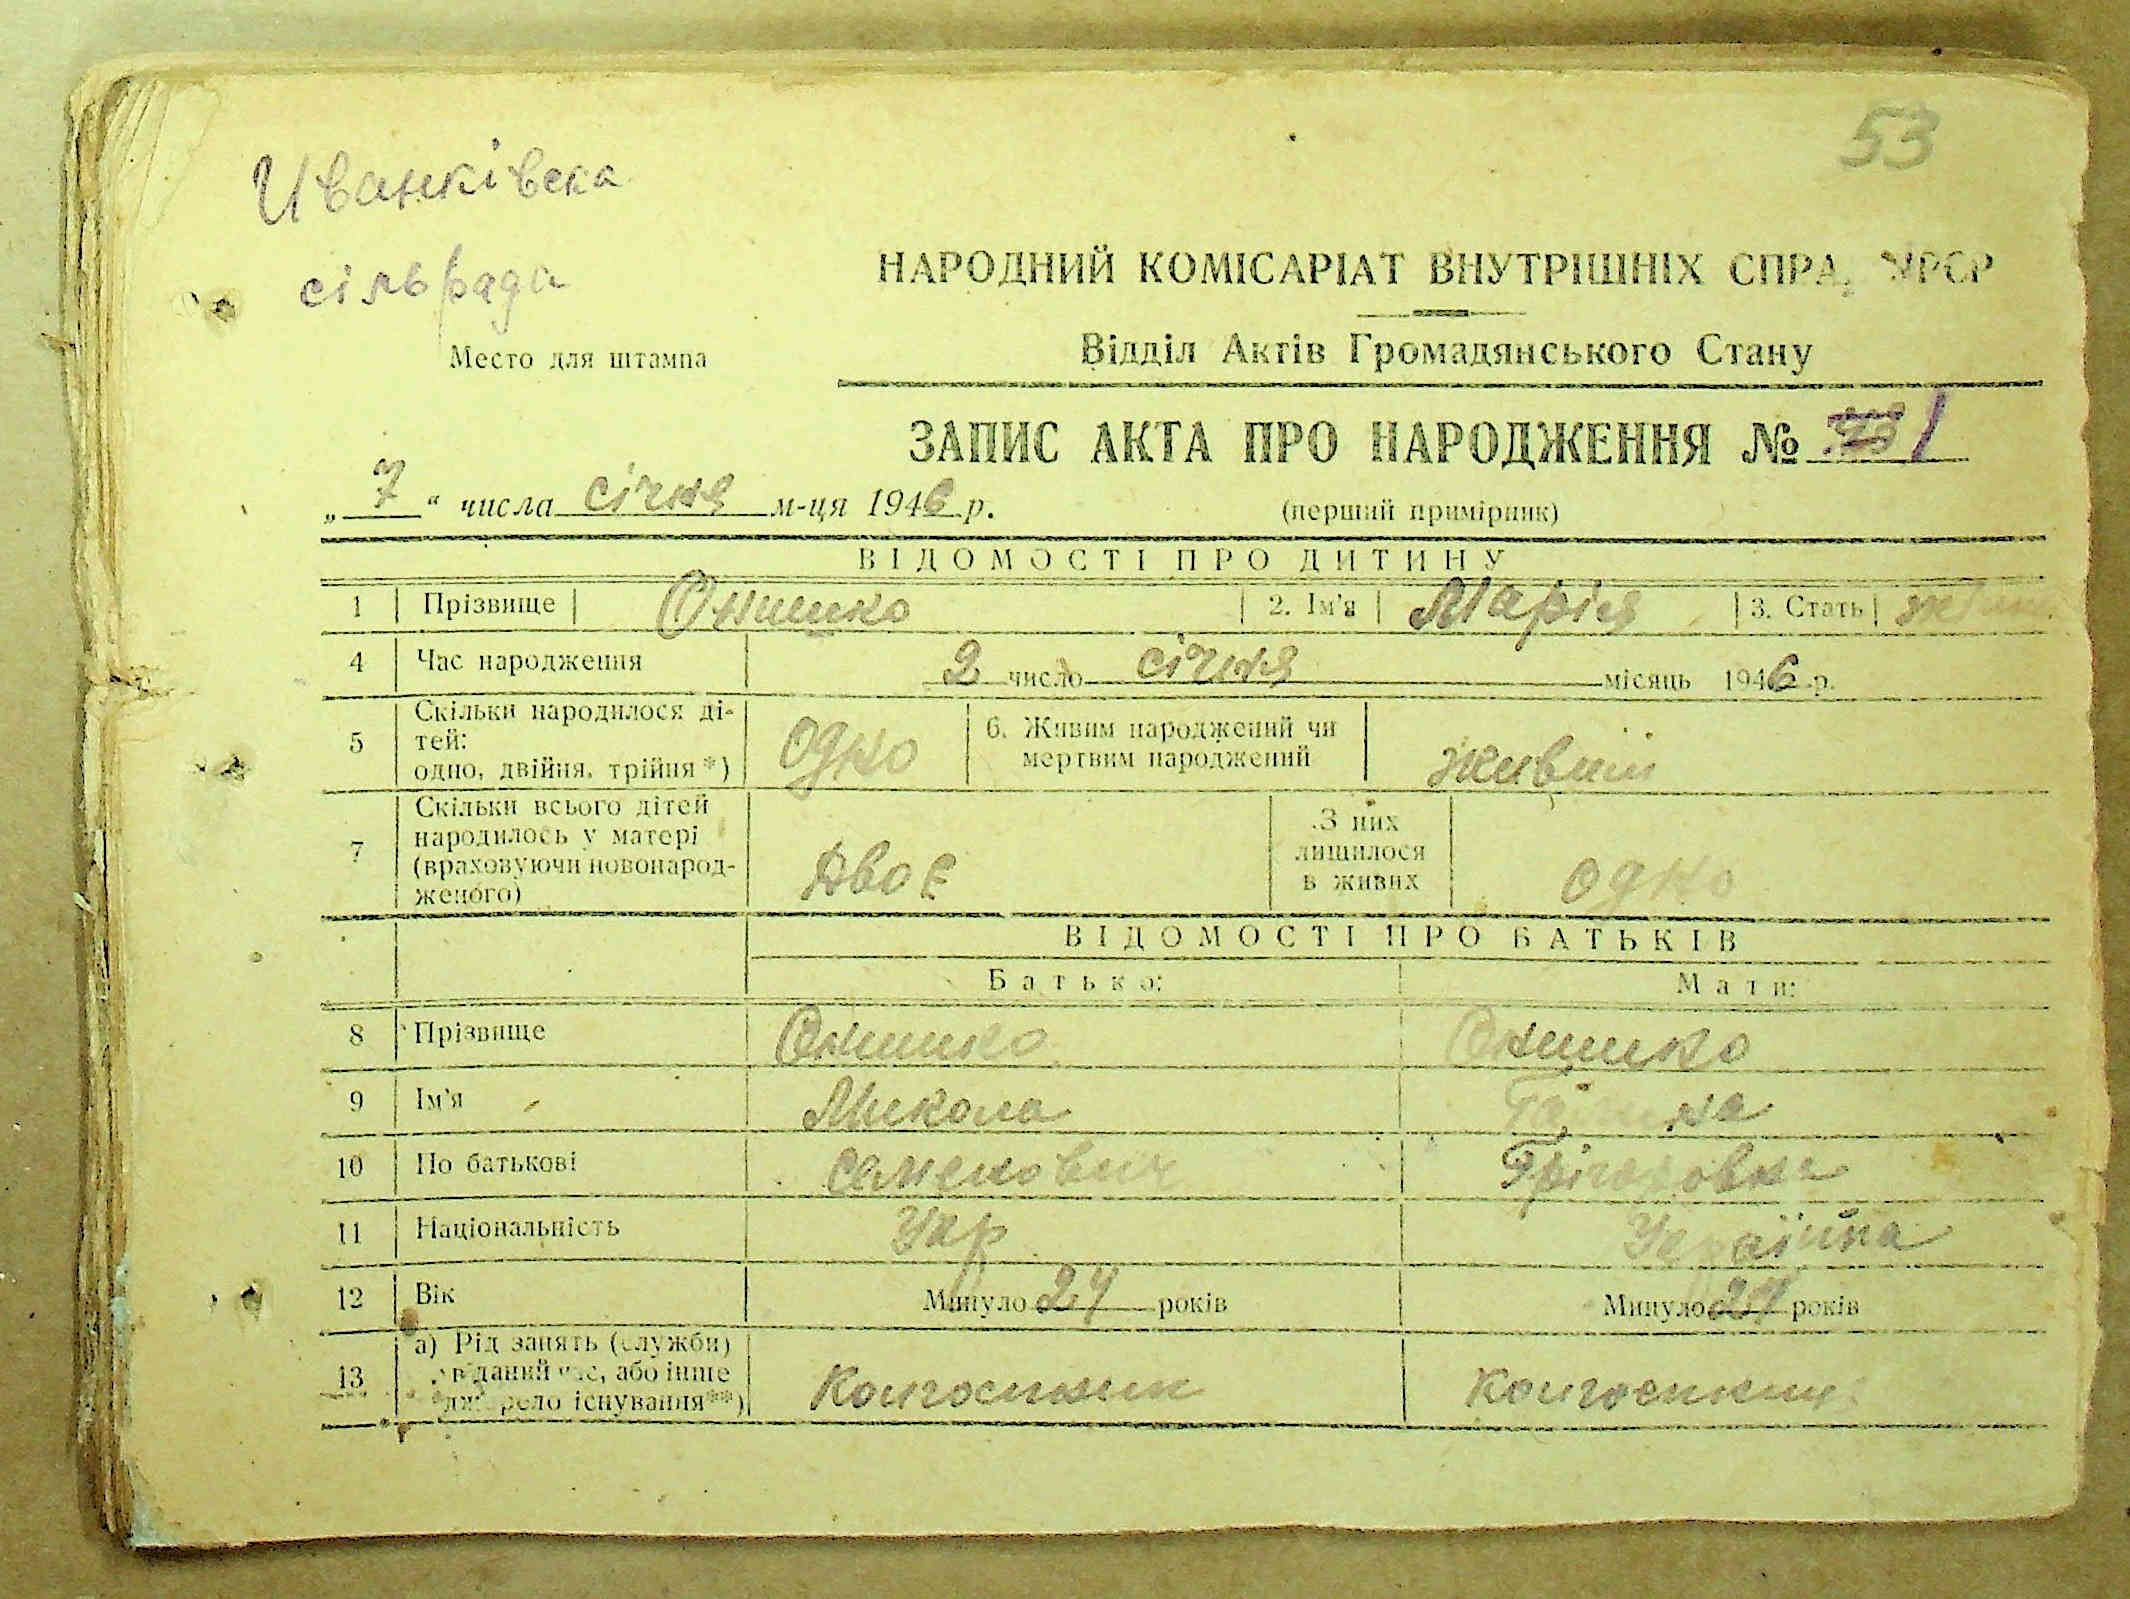 53
Иванківска
сільрада
НАРОДНИЙ КОМІСАРІАТ ВНУТРІШНІХ СПРА УРСР
Место для штампа
Відділ Актів Громадянського Стану
ЗАПИС АКТА ПРО НАРОДЖЕННЯ № 1
„7“ числа січня м-ця 1946 р.
(перший примірник)
ВІДОМОСТІ ПРО ДИТИНУ
1 Прізвище Онишко 2. Ім'я Марія 3. Стать
4 Час народження 2 число січня місяць 1946 р.
5 Скільки народилося ді-
тей:
одно, двійня, трійня*) одно
6. Живим народжений чи
мертвим народжений живий
7 Скільки всього дітей
народилось у матері
(враховуючи новонарод-
женого) Двоє
З них
лишилося
в живих одно
ВІДОМОСТІ ПРО БАТЬКІВ
Батько: Мати:
8 Прізвище Онишко Онишко
9 Ім'я Микола
10 По батькові Семенович Грігоровна
11 Національність Укр Українка
12 Вік Минуло 24 років Минуло 24 років
13 а) Рід занять (служби)
в даний час, або інше
джерело існування**) Колгоспник Колгоспниц